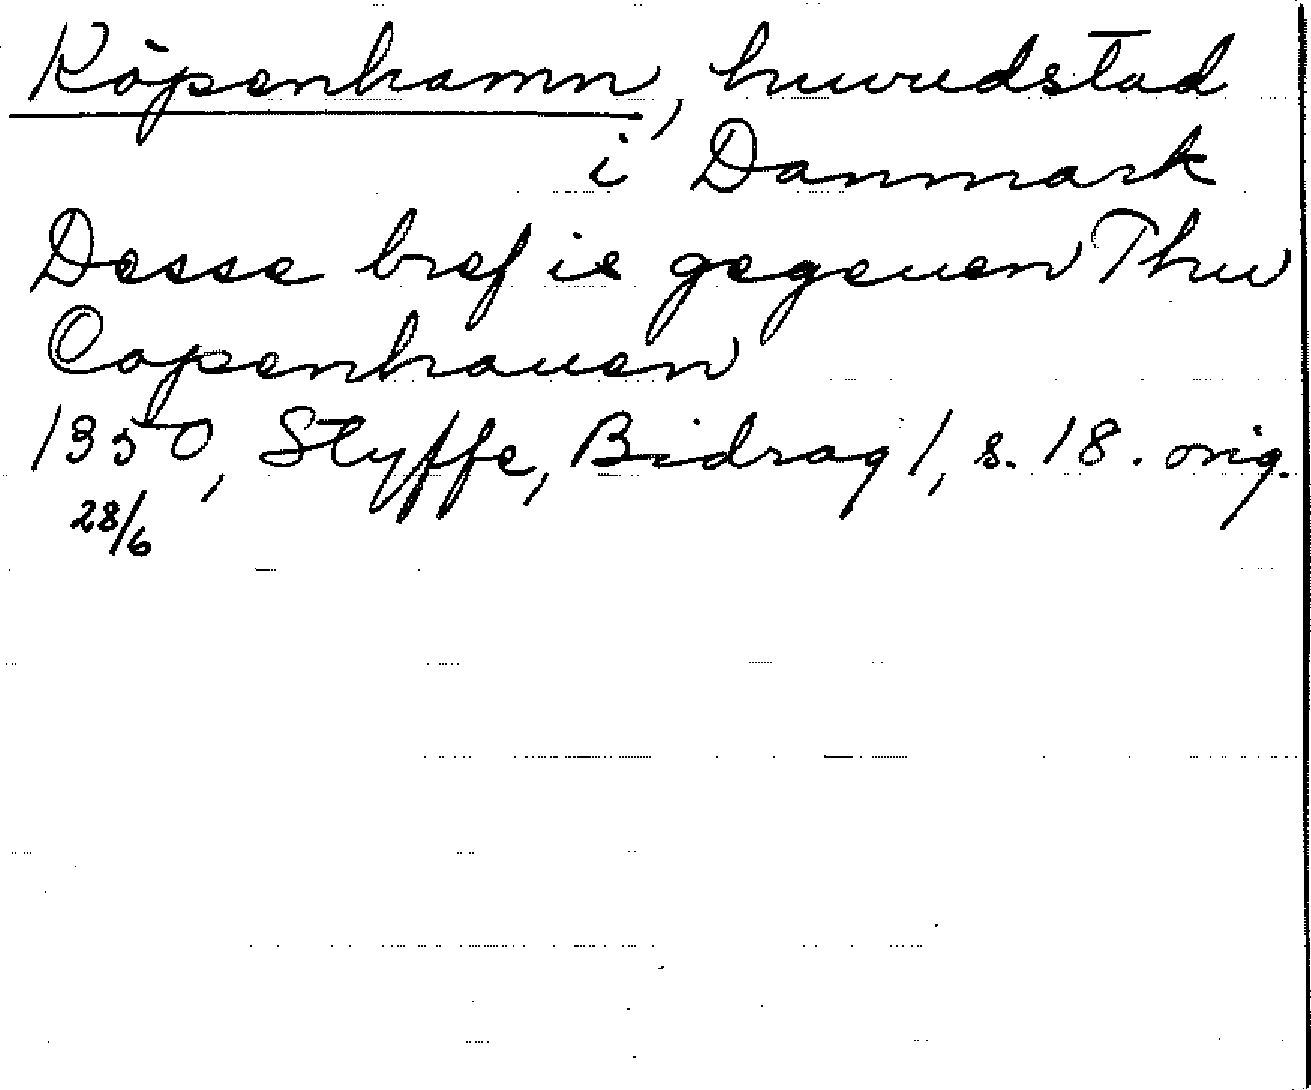 Köpenhamn, huvudstad
i Danmark
Desse bref is gegeuen Thu
Copenhauen
1350, Styffe, Bidrag 1, s. 18. orig.
28/6